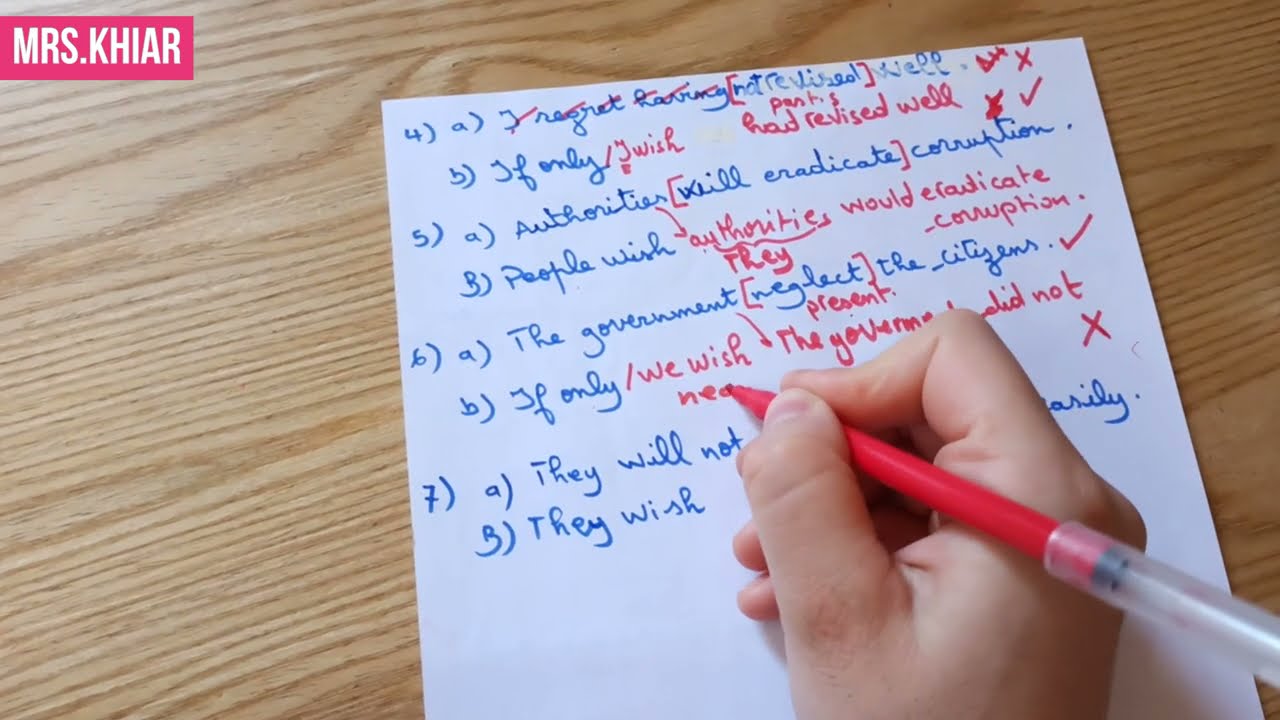 MRS.KHIAR
4) a) I regret having [not revised] well. X
past.s
b) If only / I wish had revised well X ✓
5) a) Authorities [will eradicate] corruption.
B) People wish authorities would eradicate
They corruption.
6) a) The government [neglect] the citizens. ✓
present.
b) If only / we wish The did not X
7) a) They will not easily.
B) They wish